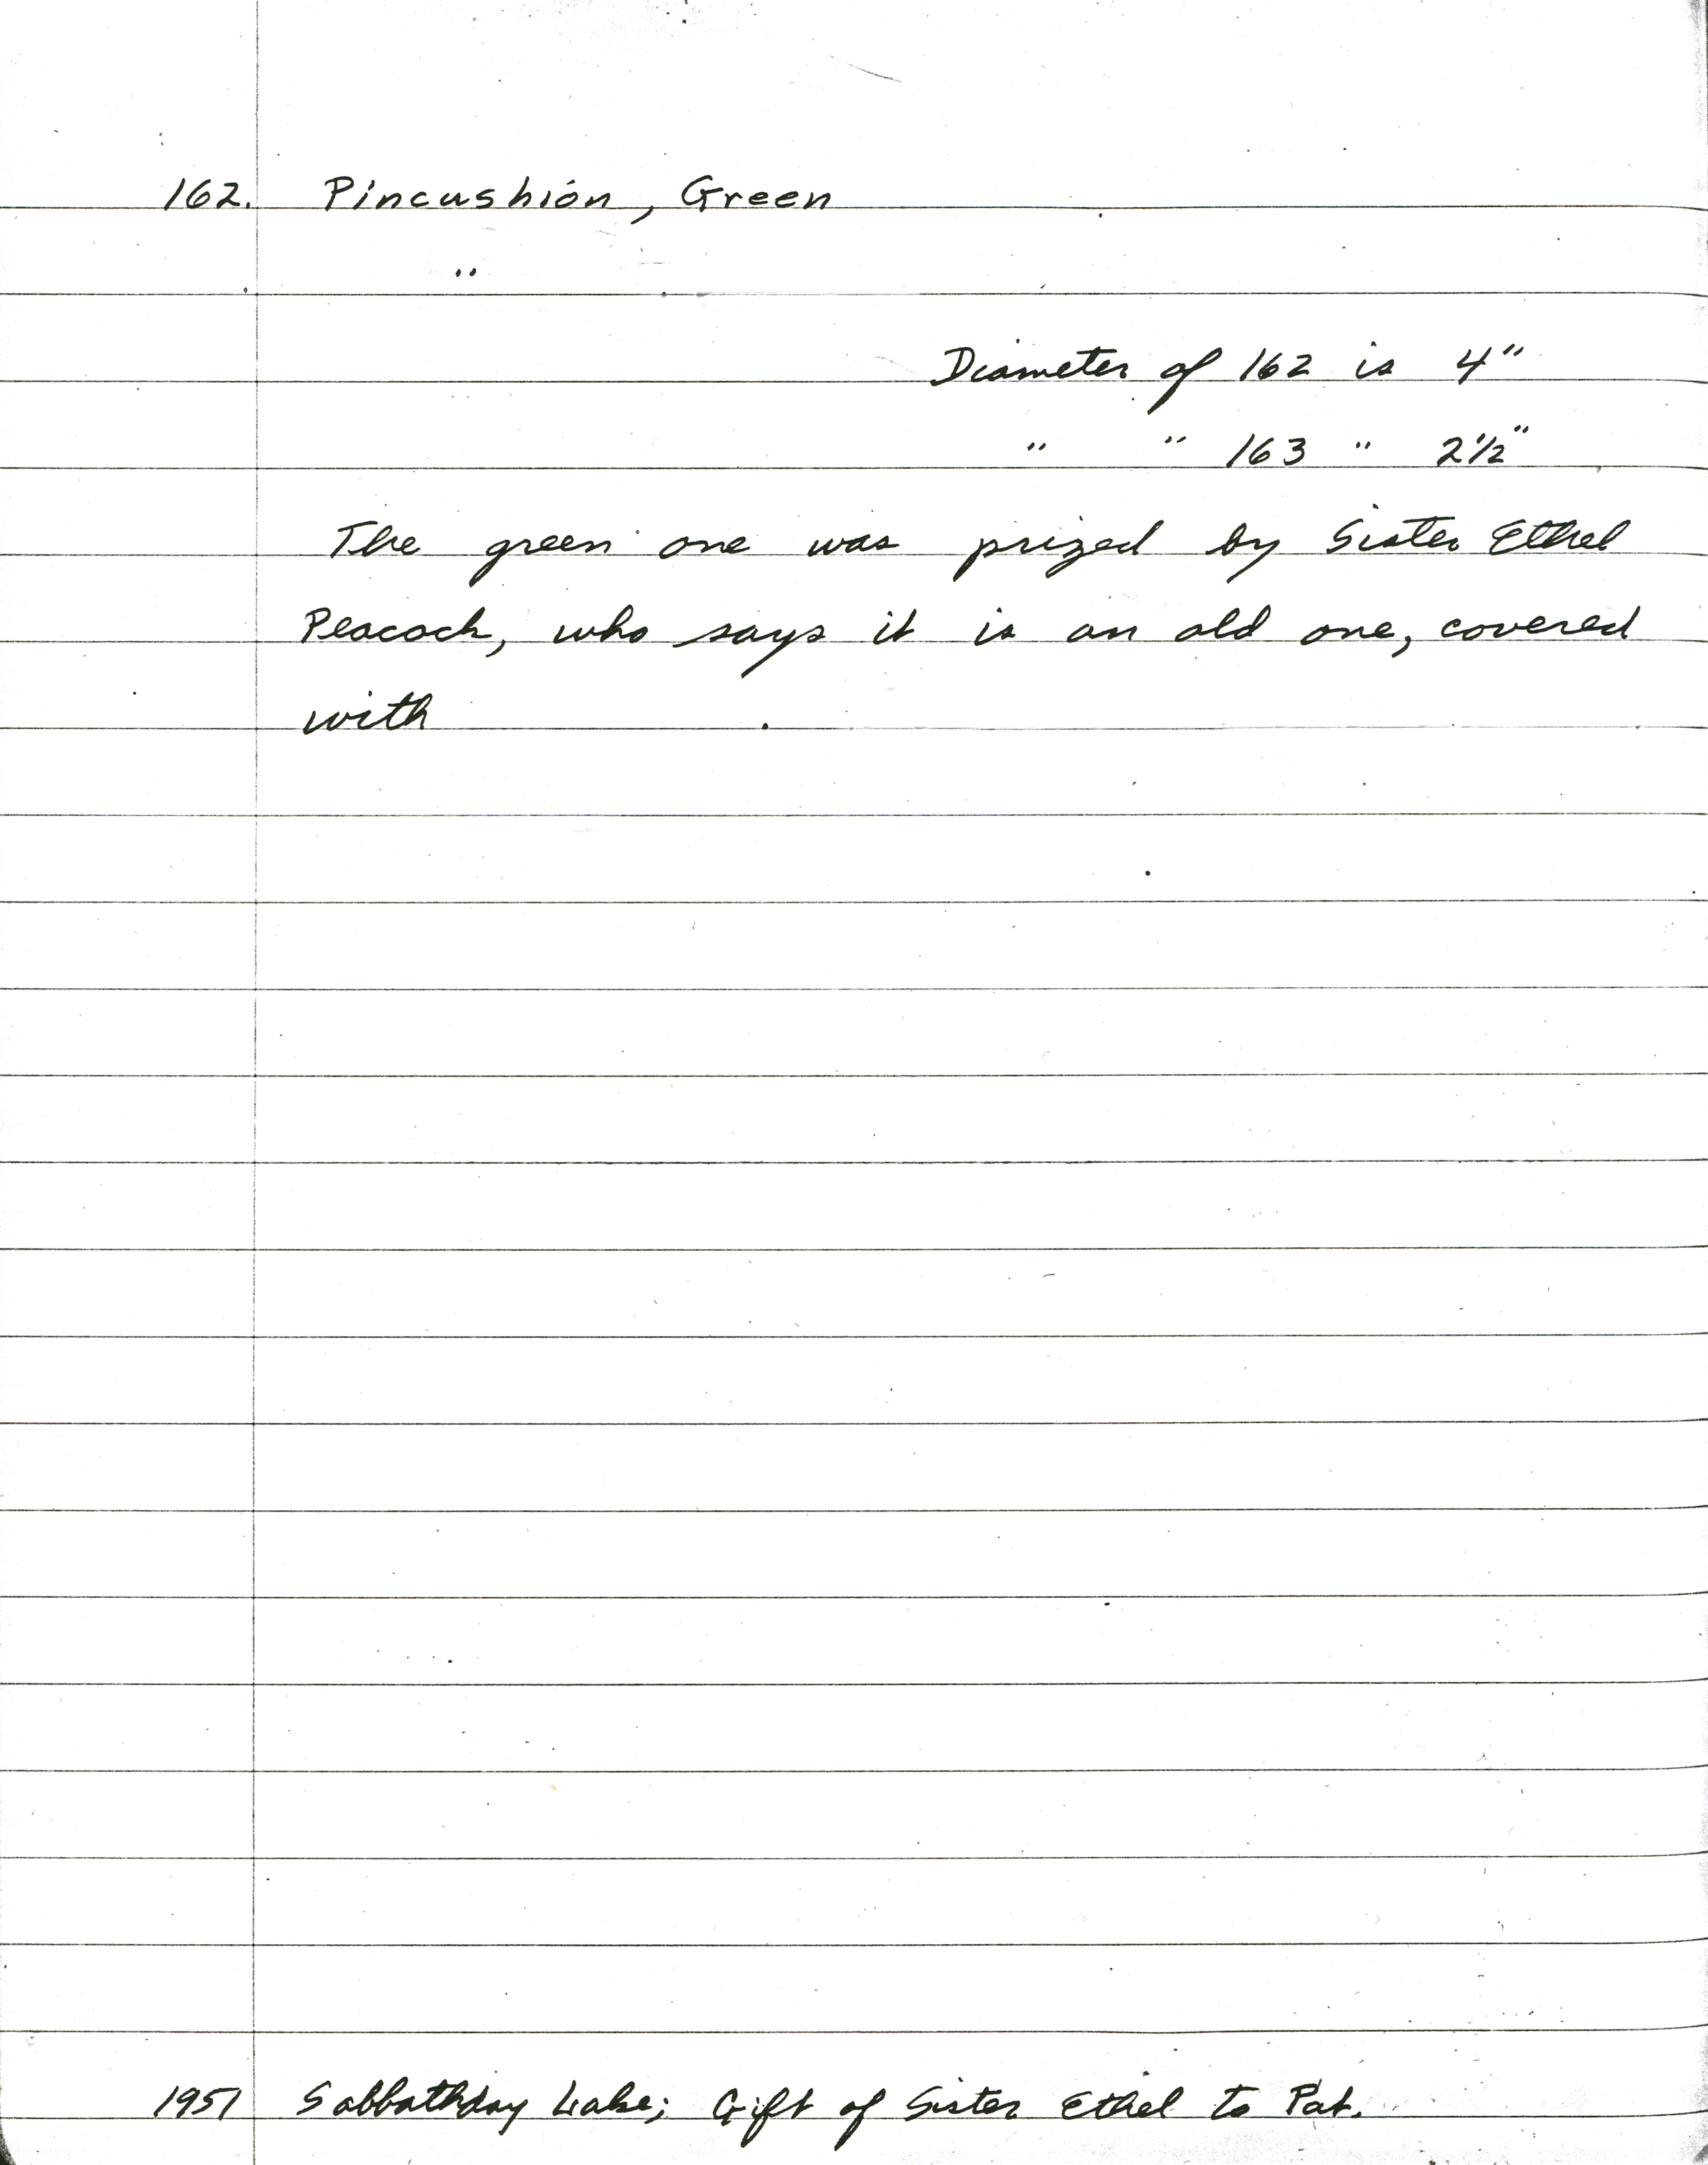 162. Pincushion, Green
"
Diameter of 162 is 4"
" " 163 " 2½"
The green one was prized by Sister Ethel
Peacock, who says it is an old one, covered
with .
1951 Sabbathday Lake; Gift of Sister Ethel to Pat.